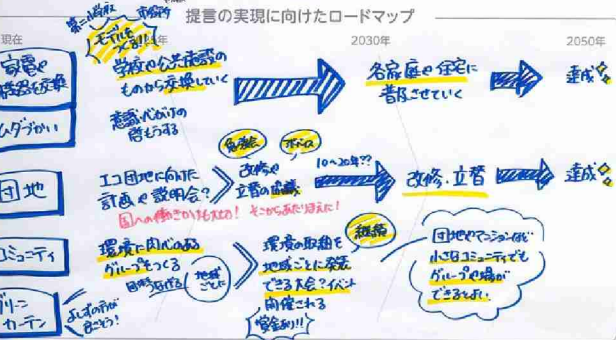 提言の実現に向けたロードマップ
現在
2030年
2050年
モデルを
つくる!!
家電や
機器を交換
学校や公共施設の
ものから交換していく
各家庭や住宅に
普及させていく
達成
ムダづかい
意識・心がけの
啓もうする
団地
エコ団地に向けた
計画や説明会?
国への働きかけも大切!
そこからあたりまえに!
勉強会
アドバイス
改修や
立替の協議
10~20年??
改修・立替
達成
コミュニティ
環境に関心のある
グループをつくる
地域
ごとに
環境の取組を
地域ごとに発表
できる大会?イベント
開催される
賞金あり!!
継続
団地やマンションなど
小さなコミュニティでも
グループや場が
できるとよい
グリーン
カーテン
よしずの方が